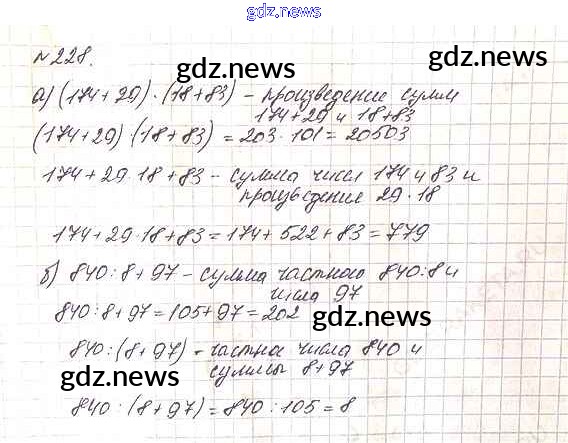 gdz.news
№228.
gdz.news
gdz.news
а) (174+29)·(18+83) – произведение сумм
174+29 и 18+83
(174+29)·(18+83) = 203·101 = 20503
174+29·18+83 – сумма чисел 174 и 83 и
произведение 29·18
174+29·18+83 = 174+522+83 = 779
б) 840:8+97 – сумма частного 840:8 и
числа 97
840:8+97 = 105+97 = 202
gdz.news
840:(8+97) – частное числа 840 и
суммы 8+97
gdz.news
840:(8+97) = 840:105 = 8